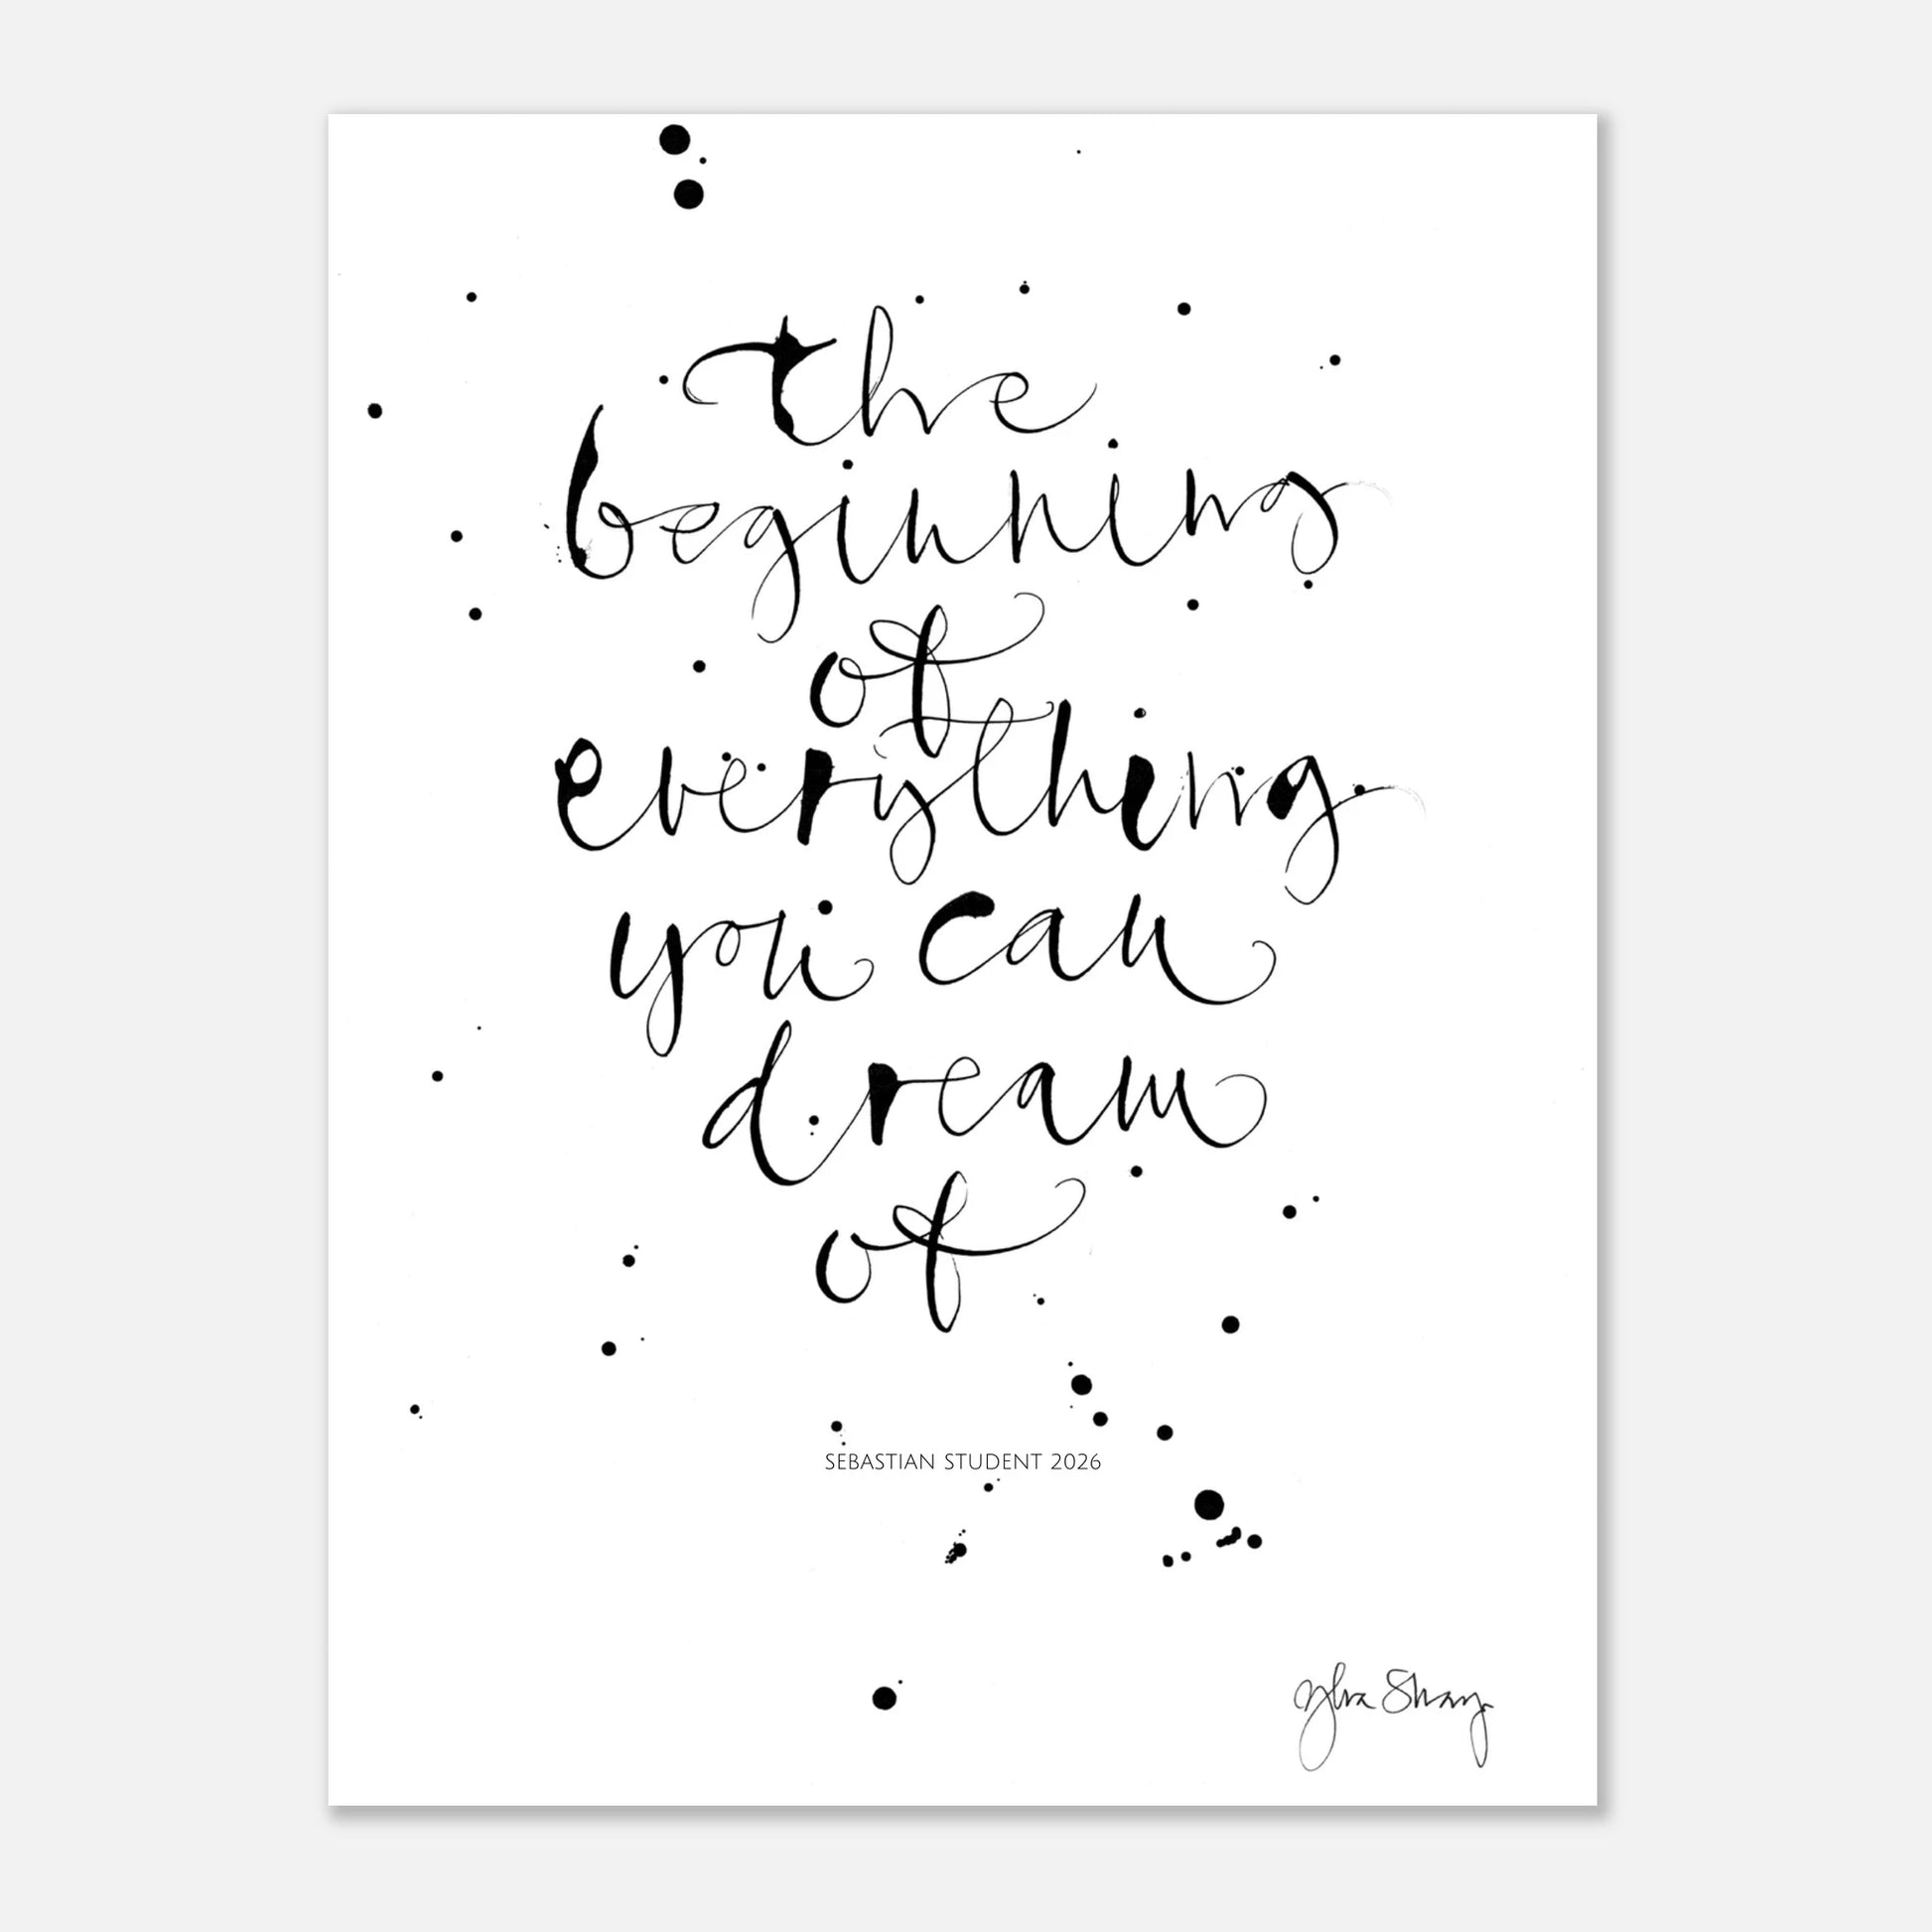 the
beginning
of
everything
you can
dream
of
SEBASTIAN STUDENT 2026
Ylva Skarp